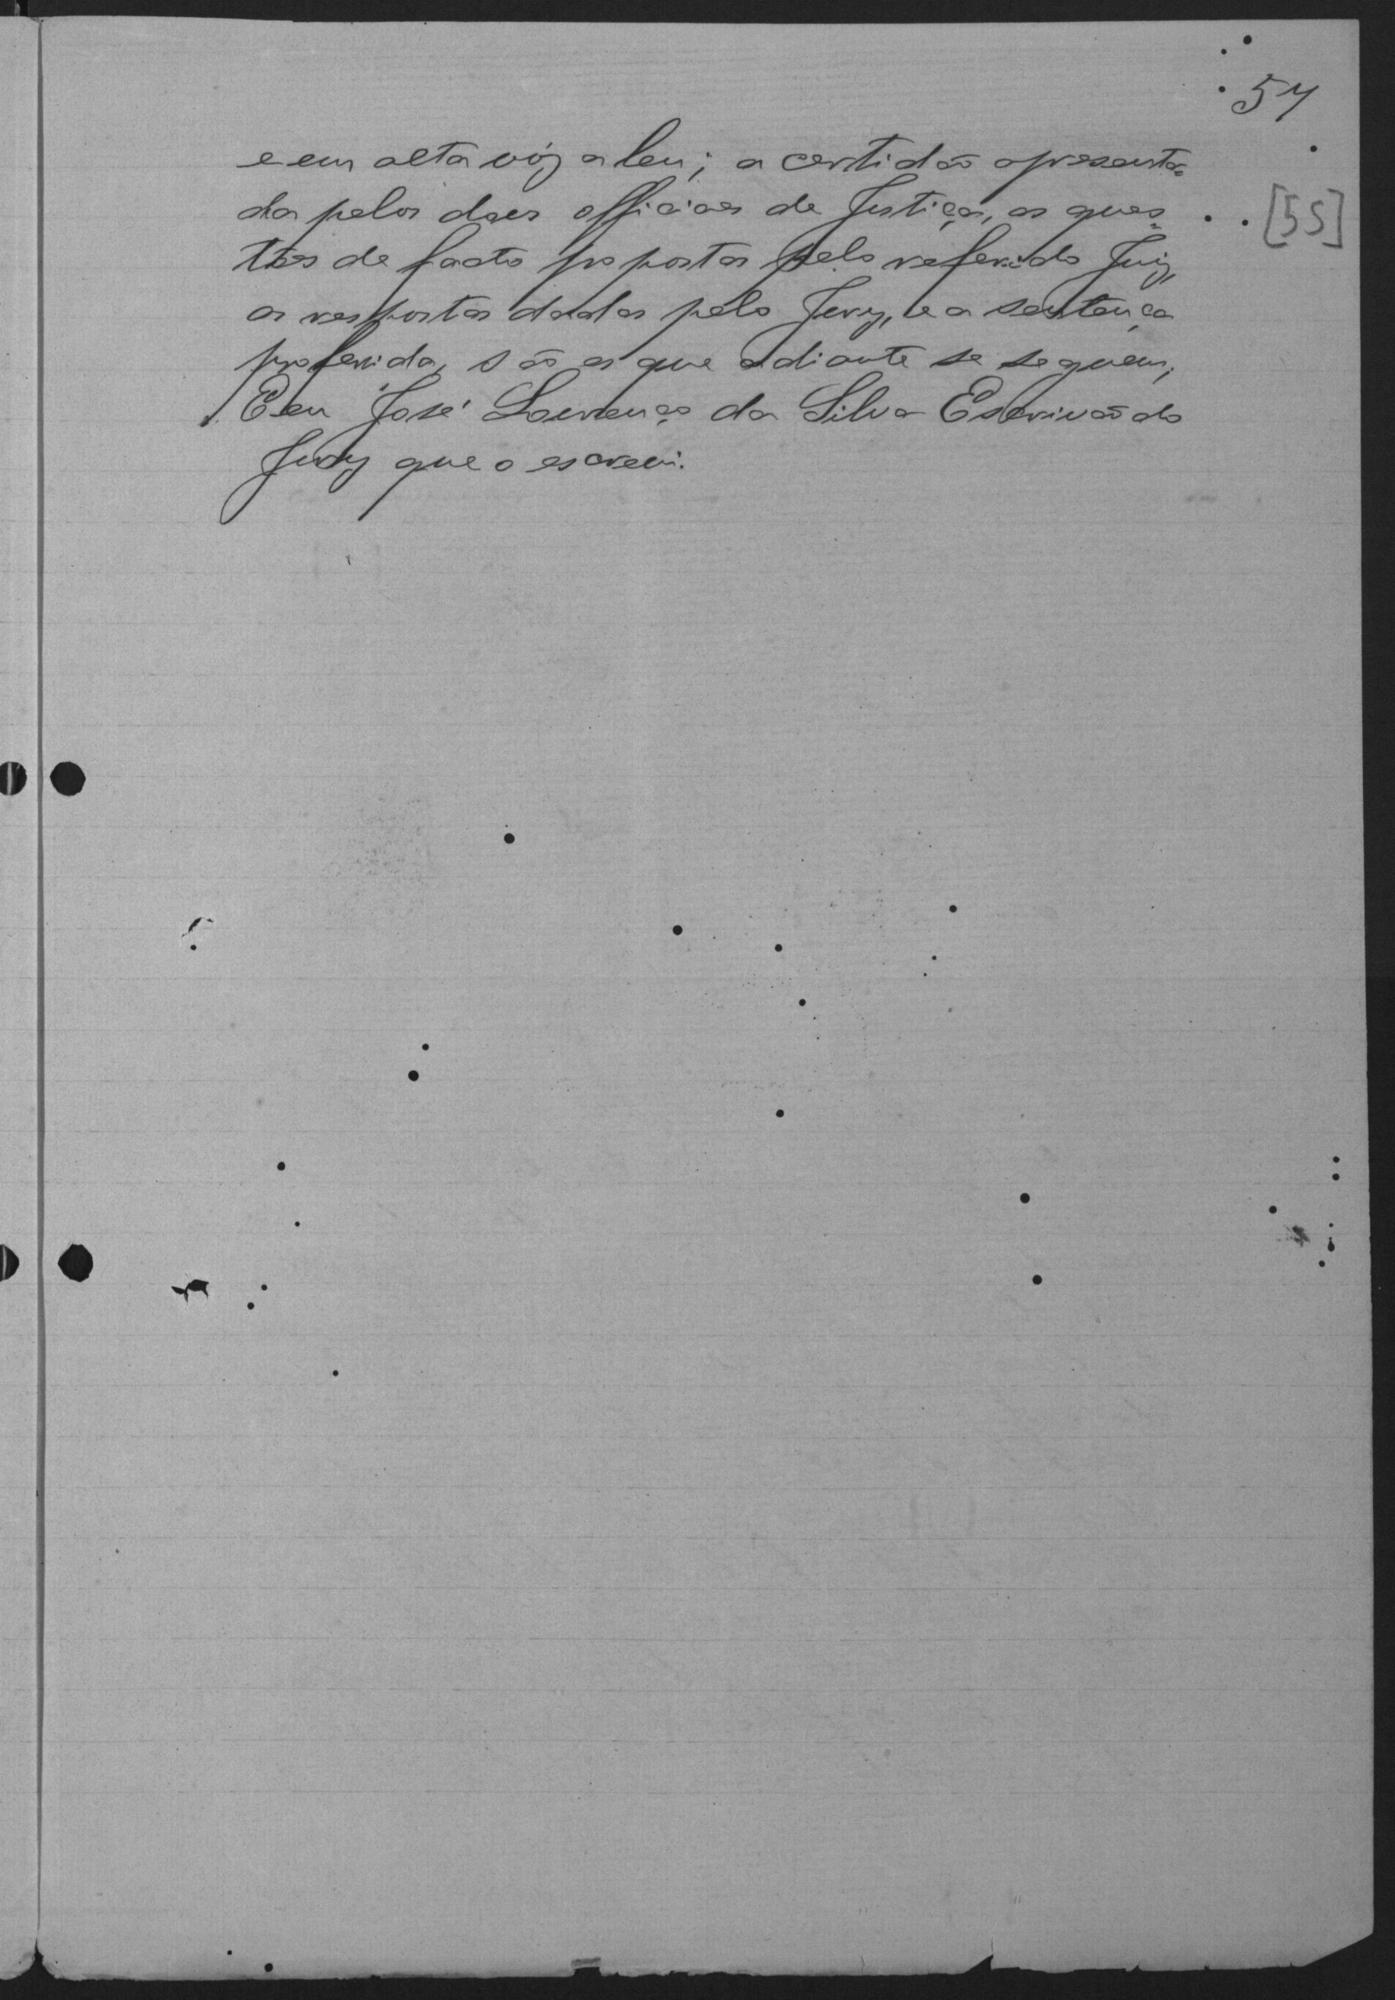 57
[55]
e em alta vóz a leu; a certidão apresenta-
da pelos does officiaes de Justiça, as ques-
tões de facto propostas pelo referido Juiz,
as respostas dadas pelo Jury, e a sentença
proferida, são as que adiante se seguem,
E eu José Lourenço da Silva Escrivão do
Jury que o escrevi.